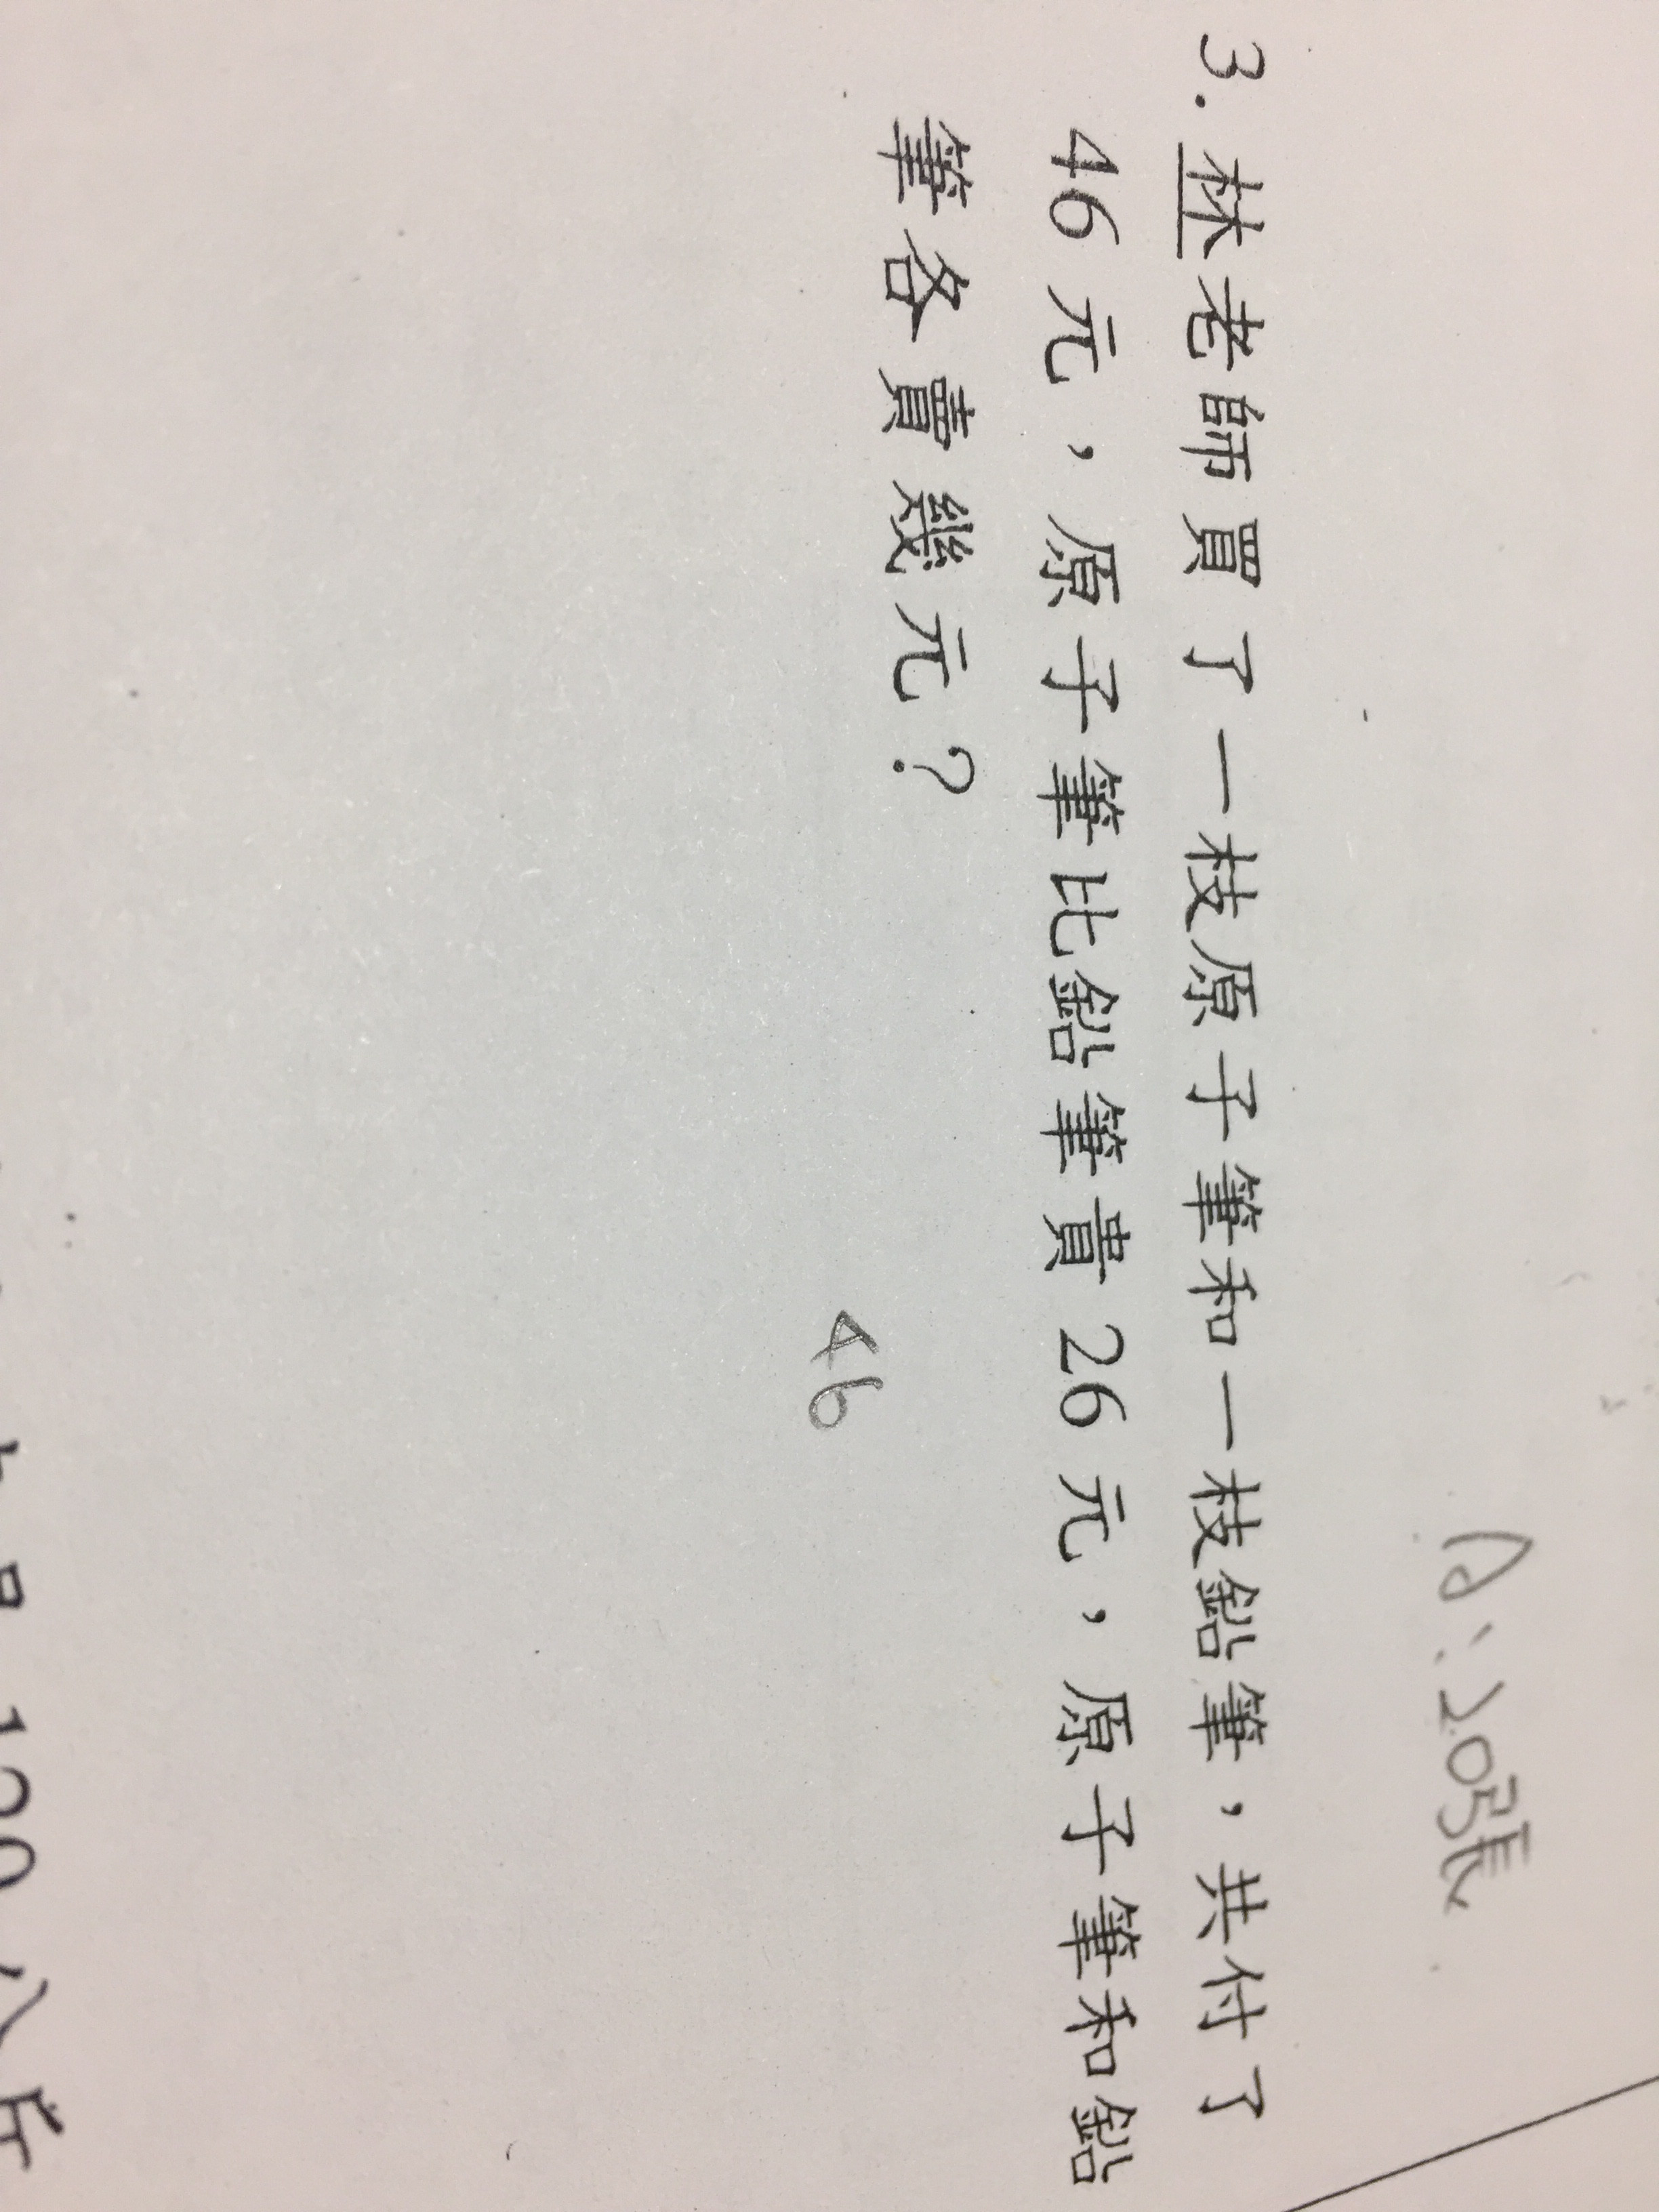 A:20張
3.林老師買了一枝原子筆和一枝鉛筆，共付了
46元，原子筆比鉛筆貴26元，原子筆和鉛
筆各賣幾元？
46